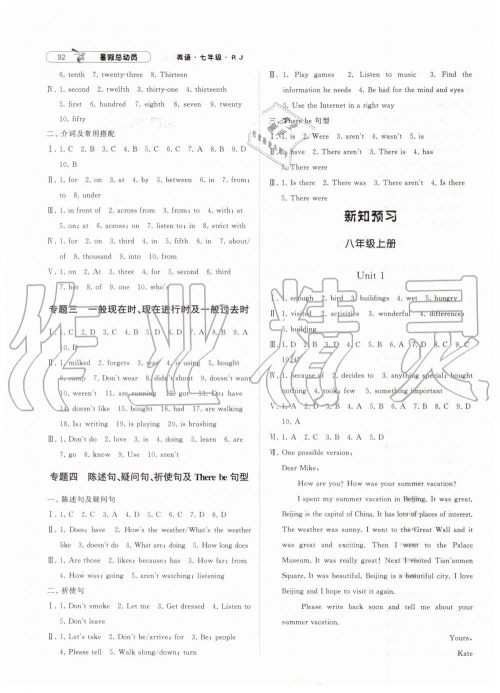 92 暑假总动员 英语·七年级·RJ
6. tenth 7. twenty-three 8. Thirteen
Ⅳ. 1. second 2. twelfth 3. thirty-one 4. thirteenth
5. first 6. hundred 7. eighth 8. seven 9. twenty
10. fifty
二、介词及常用搭配
Ⅰ. 1. C 2. B 3. C 4. B 5. C 6. A 7. C 8. D 9. D
10. B
Ⅱ. 1. for 2. on 3. at 4. by 5. between 6. in 7. from;
to 8. under
Ⅲ. 1. in front of 2. across from 3. from; to 4. with; at
5. across; on 6. after; on 7. listen to; in 8. strict with
Ⅳ. 1. for 2. on 3. third 4. in 5. fifth 6. in 7. about/
of 8. thousand 9. into 10. from
Ⅴ. 1. on 2. At 3. three 4. for 5. second 6. third
7. her 8. of 9. one 10. who's
专题三 一般现在时、现在进行时及一般过去时
Ⅰ. 1. C 2. D 3. C 4. B 5. D 6. A 7. C 8. B 9. A
10. D
Ⅱ. 1. milked 2. forgets 3. was 4. is using 5. bought
6. rang 7. Don't wear 8. didn't shout 9. doesn't want
10. weren't 11. are running 12. got 13. Do; have
14. doesn't like 15. bought 16. had 17. are walking
18. Is; writing 19. is playing 20. is brushing
Ⅲ. 1. Don't do 2. love 3. is snowing 4. learn 5. are
6. go 7. know 8. Use 9. ran 10. isn't
专题四 陈述句、疑问句、祈使句及 There be 句型
一、陈述句及疑问句
Ⅰ. 1. C 2. C 3. A 4. D 5. A 6. D 7. B
Ⅱ. 1. Does; have 2. How's the weather/What's the weather
like 3. doesn't do 4. What; doing 5. How long does
Ⅲ. 1. Are those 2. likes; because; has 3. How far; from
4. How was; going 5. aren't watching; listening
二、祈使句
Ⅰ. 1. Don't smoke 2. Let me 3. Get dressed 4. Listen to
5. Don't leave
Ⅱ. 1. Let's take 2. Don't be/arrive 3. for 3. Be; people
4. Please tell 5. Walk along/down; turn
Ⅲ. 1. Play games 2. Listen to music 3. Find the
information he needs 4. Be bad for the mind and eyes
5. Use the Internet in a right way
三、There be 句型
Ⅰ. 1. is 2. Were 3. aren't 4. wasn't 5. is
Ⅱ. 1. have 2. There aren't 3. There is 4. has
5. There were
Ⅲ. 1. Is there 2. There was 3. is having 4. is there
5. There were
新知预习
八年级上册
Unit 1
Ⅰ. 1. enough 2. bird 3. buildings 4. wet 5. hungry
Ⅱ. 1. visited 2. activities 3. wonderful 4. difference
5. building
Ⅲ. 1. D 2. B 3. D 4. C 5. A 6. D 7. B 8. D 9. C
10. C
Ⅳ. 1. because of 2. decides to 3. anything special; bought
nothing 4. took; few 5. something important
Ⅴ. 1. A 2. D 3. B 4. C 5. B 6. A 7. B 8. D 9. C
10. A
Ⅵ. 1. D 2. C 3. A 4. B 5. C
Ⅶ. One possible version:
Dear Mike,
How are you? How was your summer vacation?
I spent my summer vacation in Beijing. It was great.
Beijing is the capital of China. It has lots of places of interest.
The weather was sunny. I went to the Great Wall and it
was great and exciting. Then I went to the Palace
Museum. It was really great! Next I visited Tian'anmen
Square. It was beautiful. Beijing is a beautiful city and I
hope to visit it again.
Please write back soon and tell me about your
summer vacation.
Yours,
Kate
作业精灵